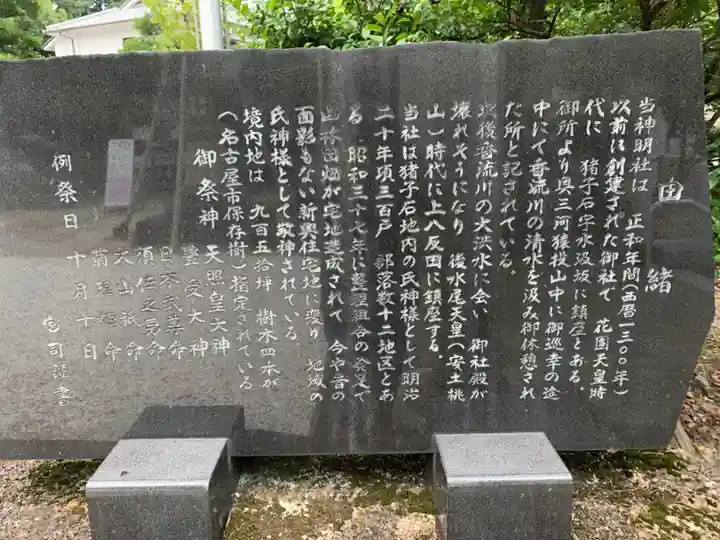 由緒
当神明社は 正和年間(西暦一三00年)
以前に創建された御社で 花園天皇時
代に 猪子石字水汲坂に鎮座とある。
御所より奥三河猿投山中に御巡幸の途
中にて香流川の清水を汲み御休憩され
た所と記されている。
此後香流川の大洪水に会い 御社殿が
壊れそうになり 後水尾天皇(安土桃
山)時代に上八反田に鎮座する。
当社は猪子石地内の氏神様として明治
二十年項三百戸 部落数十二地区とあ
る 昭和三十七年に整理組合の発足で
山林田畑が宅地造成されて 今や昔の
面影もない新興住宅地に変り 地域の
氏神様として敬神されている。
境内地は 九百五拾坪 樹木四本が
(名古屋市保存樹)指定されている
御祭神 天照皇大神
豊受大神
日本武尊命
須佐之男命
大山祇命
菊理姫命
例祭日 十月十日
宮司謹書